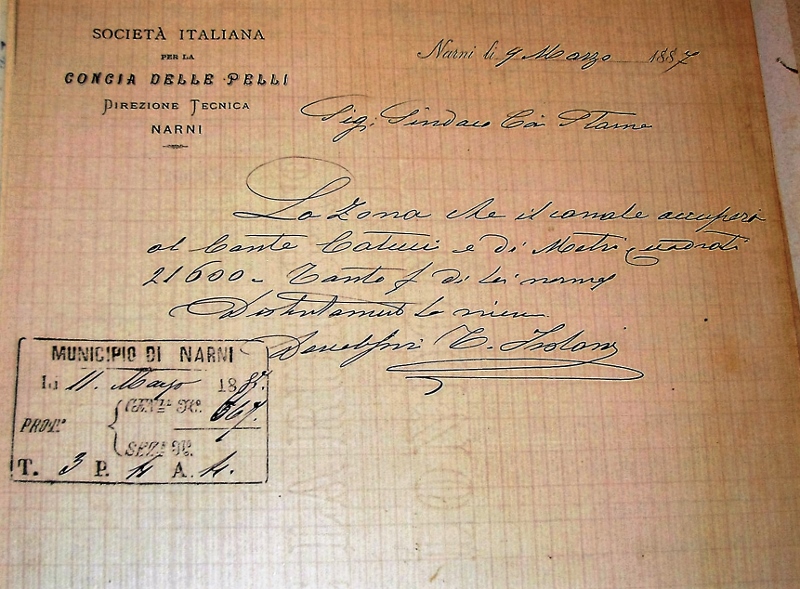 SOCIETÀ ITALIANA
PER LA
CONCIA DELLE PELLI
DIREZIONE TECNICA
NARNI
Narni li 9 Marzo 1887
Sig. Sindaco
La Zona che il canale occuperà
al Conte Catucci e di Metri quadrati
21600 - Tanto di
Distintamente
MUNICIPIO DI NARNI
Li 11. Marzo 1887.
PROT.º
GEN.le N.º 667.
SEZ.e N.º
T. 3 P. 4 A. 4.